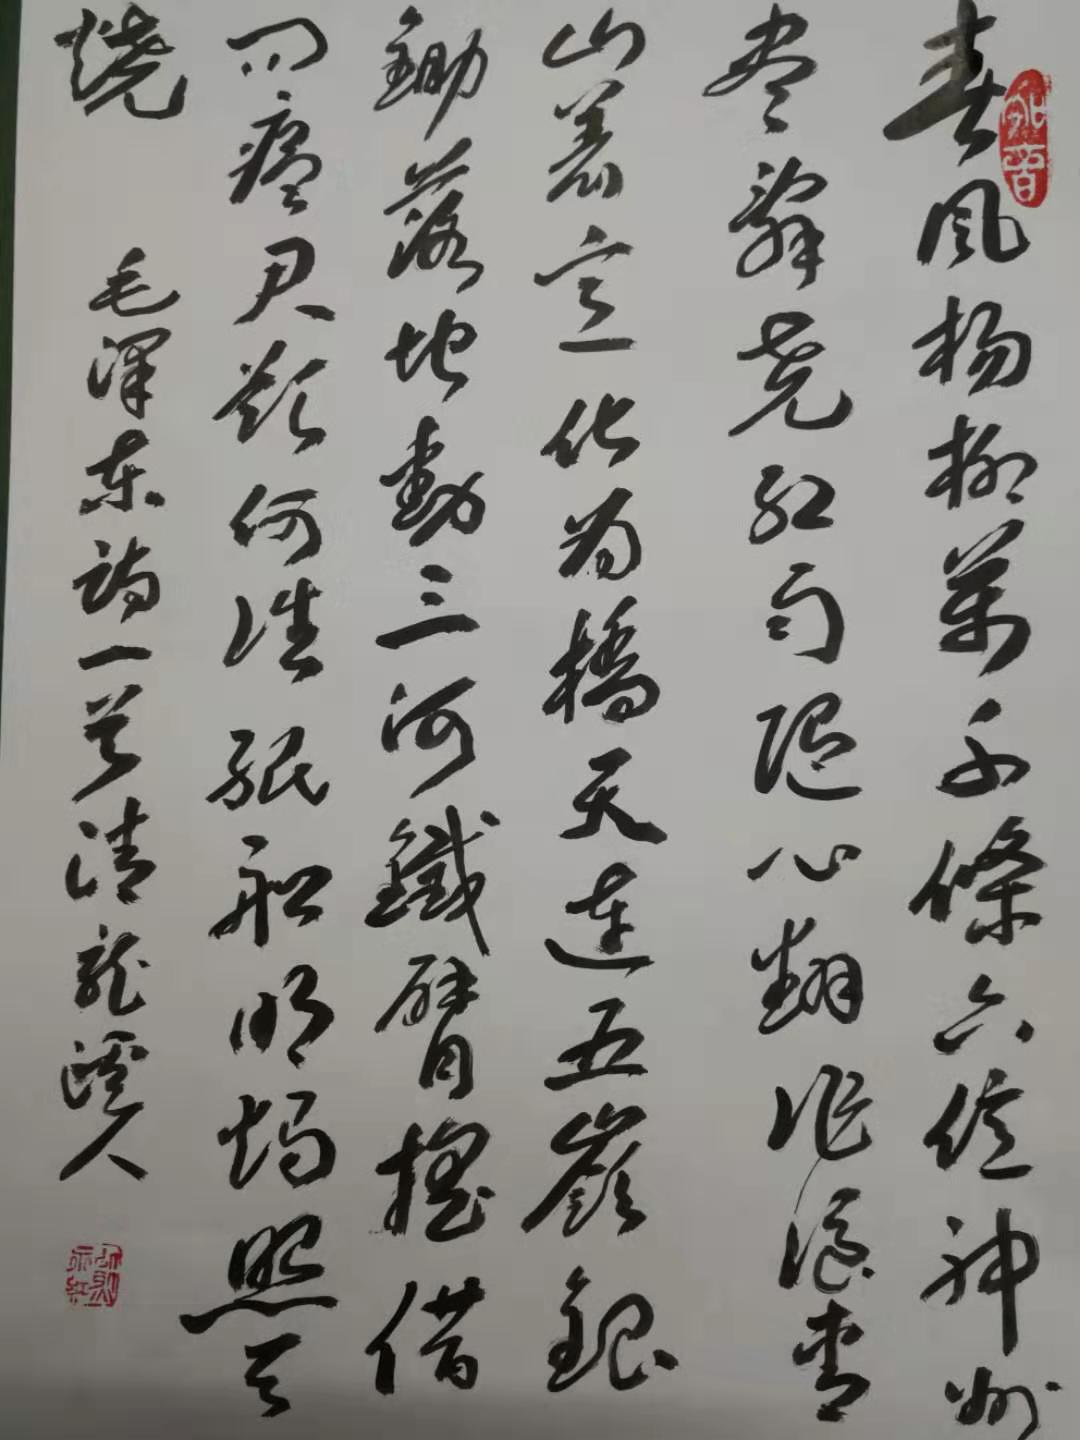 春风杨柳万千條六億神州
尽舜尧红雨随心翻作浪青
山着意化为橋天连五嶺銀
鋤落地動三河鐵臂摇借
问瘟君欲何往纸船明烛照天
燒
毛泽东诗一首清龙溪人